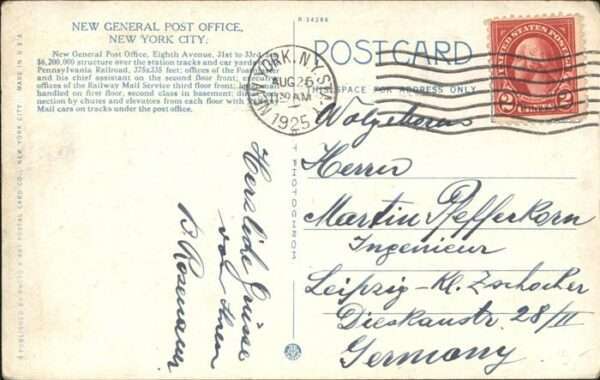 NEW GENERAL POST OFFICE,
NEW YORK CITY.
New General Post Office, Eighth Avenue, 31st to 33rd
$6,200,000 structure over the station tracks and car yards
Pennsylvania Railroad, 375x338 feet; offices of the Postmaster
and his chief assistant on the second floor front; executive
offices of the Railway Mail Service third floor front;
handled on first floor, second class in basement; direct con-
nection by chutes and elevators from each floor with
Mail cars on tracks under the post office.
MADE IN U.S.A.
PUBLISHED BY CO., NEW YORK CITY
R-34286
POSTCARD
THIS SPACE FOR ADDRESS ONLY
PHOTOCHROM
NEW YORK, N.Y.
AUG 26
AM
1925
UNITED STATES POSTAGE
2 2
Herzliche Grüsse
von Ihren
D. Rosenauer
Herrn
Martin Pfefferkorn
Ingenieur
Leipzig-Kl. Zschocher
Dieskaustr. 28/II
Germany